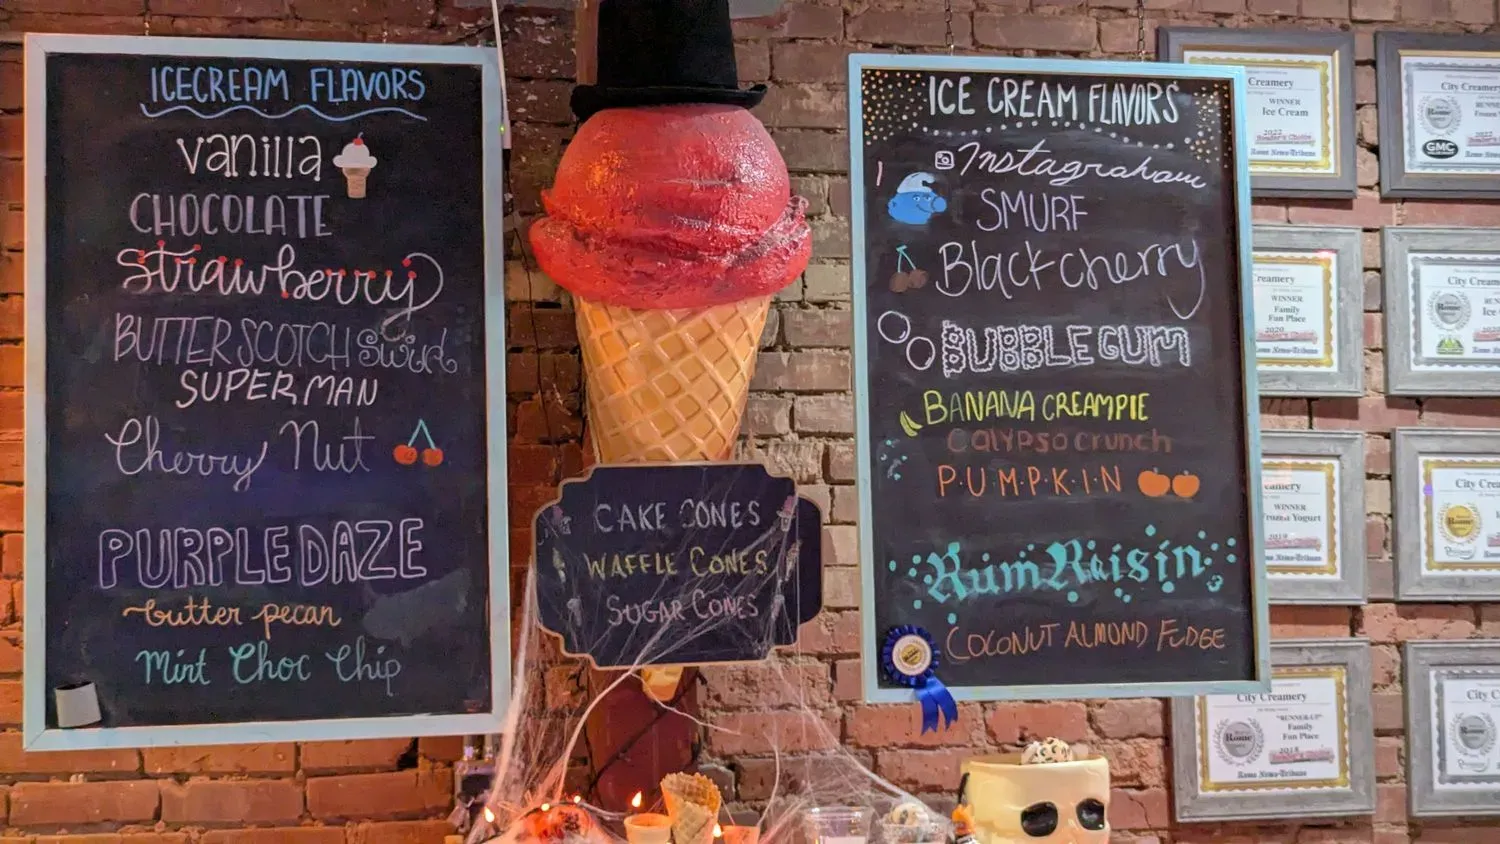 ICECREAM FLAVORS
vanilla
CHOCOLATE
strawberry
BUTTERSCOTCH Swirl
SUPERMAN
Cherry Nut
PURPLE DAZE
butter pecan
Mint Choc Chip
CAKE CONES
WAFFLE CONES
SUGAR CONES
ICE CREAM FLAVORS
Instagraham
SMURF
Black cherry
BUBBLE GUM
BANANA CREAMPIE
Calypso crunch
P·U·M·P·K·I·N
Rum Raisin
COCONUT ALMOND FUDGE
Creamery
WINNER
Ice Cream
2022
Rome News-Tribune
City Creamery
2022
GMC
WINNER
Family
Fun Place
2020
Rome News-Tribune
City Cream
Rome
WINNER
2019
Rome News-Tribune
City Crea
City Creamery
"RUNNER-UP"
Family
Fun Place
2018
Rome
Rome News-Tribune
City C